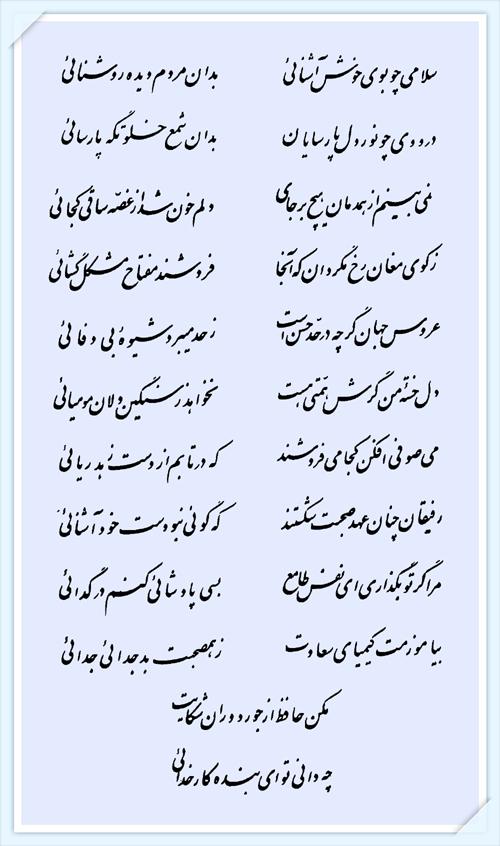 سلامی چو بوی خوش آشنائی بدان مردم دیده روشنائی
درودی چو نور دل پارسایان بدان شمع خلوتگه پارسائی
نمی بینم از همدمان هیچ برجای دلم خون شد از غصه ساقی کجائی
زکوی مغان رخ مگردان که آنجا فروشند مفتاح مشکل گشائی
عروس جهان گرچه در حد حسن است زحد میبرد شیوهٔ بی وفائی
دل خسته من گرش همتی هست نخواهد ز سنگین دلان مومیائی
می صوفی افکن کجا می فروشند که در تابم از دست زهد ریائی
رفیقان چنان عهد صحبت شکستند که گوئی نبودست خود آشنائی
مرا گر تو بگذاری ای نفس طامع بسی پادشائی کنم در گدائی
بیاموزمت کیمیای سعادت زهمصحبت بد جدائی جدائی
مکن حافظ از جور دوران شکایت
چه دانی تو ای بنده کار خدائی